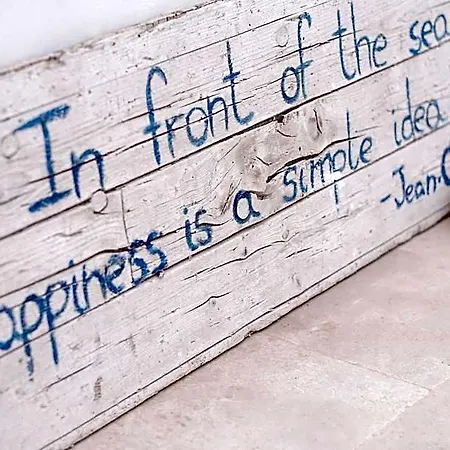 In front of the sea
appiness is a simple idea
-Jean-C